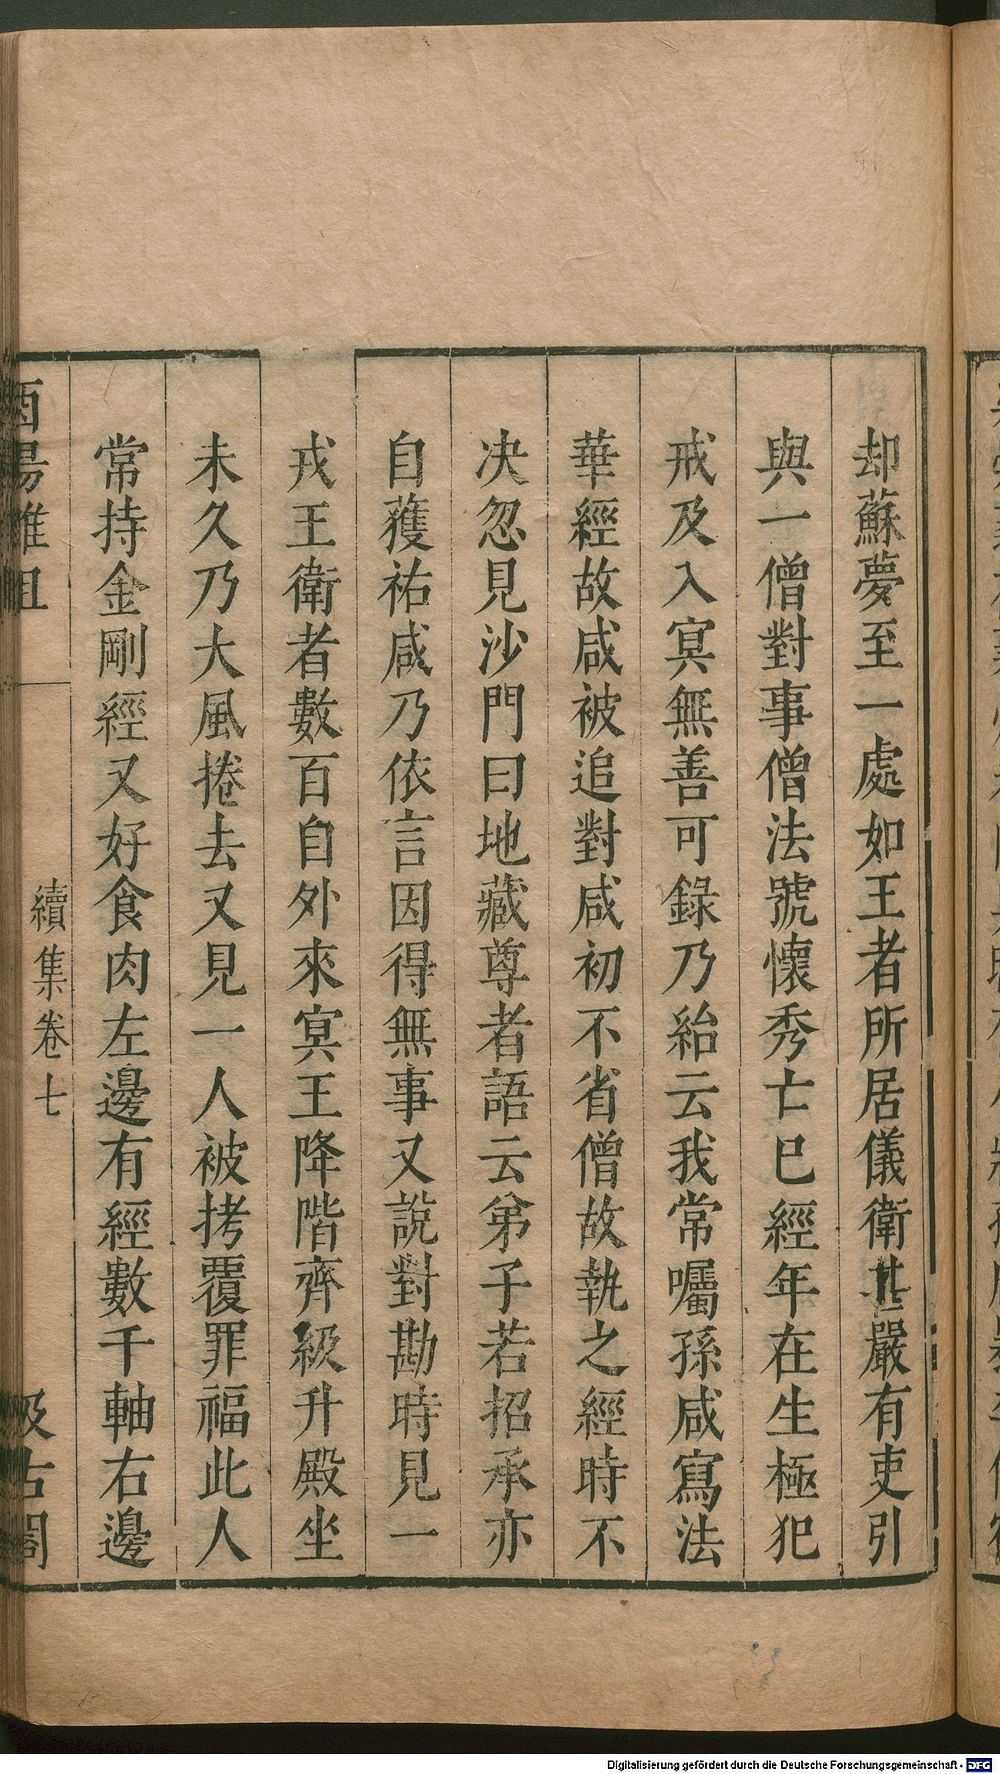 却蘇夢至一處如王者所居儀衛甚嚴有吏引
與一僧對事僧法號懷秀亡已經年在生極犯
戒及入冥無善可錄乃紿云我常囑孫咸寫法
華經故咸被追對咸初不省僧故執之經時不
决忽見沙門曰地藏尊者語云弟子若招承亦
自蒦祐咸乃依言因得無事又說對勘時見一
戎王衛者數百自外來冥王降階齊級升殿坐
未久乃大風捲去又見一人被拷覆罪福此人
常持金剛經又好食肉左邊有經數千軸右邊
酉陽雜俎
續集卷七
汲古閣
Digitalisierung gefördert durch die Deutsche Forschungsgemeinschaft - DFG